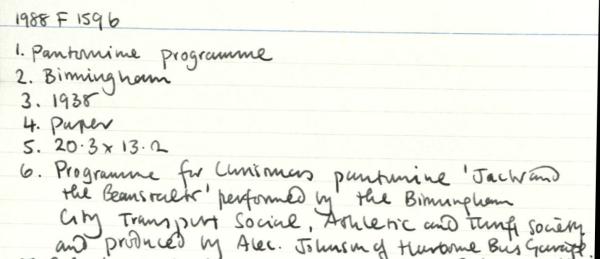 1988 F 1596
1. Pantomime programme
2. Birmingham
3. 1938
4. Paper
5. 20.3 x 13.2
6. Programme for Christmas pantomime 'Jack and
the Beanstalk' performed by the Birmingham
City Transport Social, Athletic and Thrift Society
and produced by Alec. Johnson of Harborne Bus Garage.